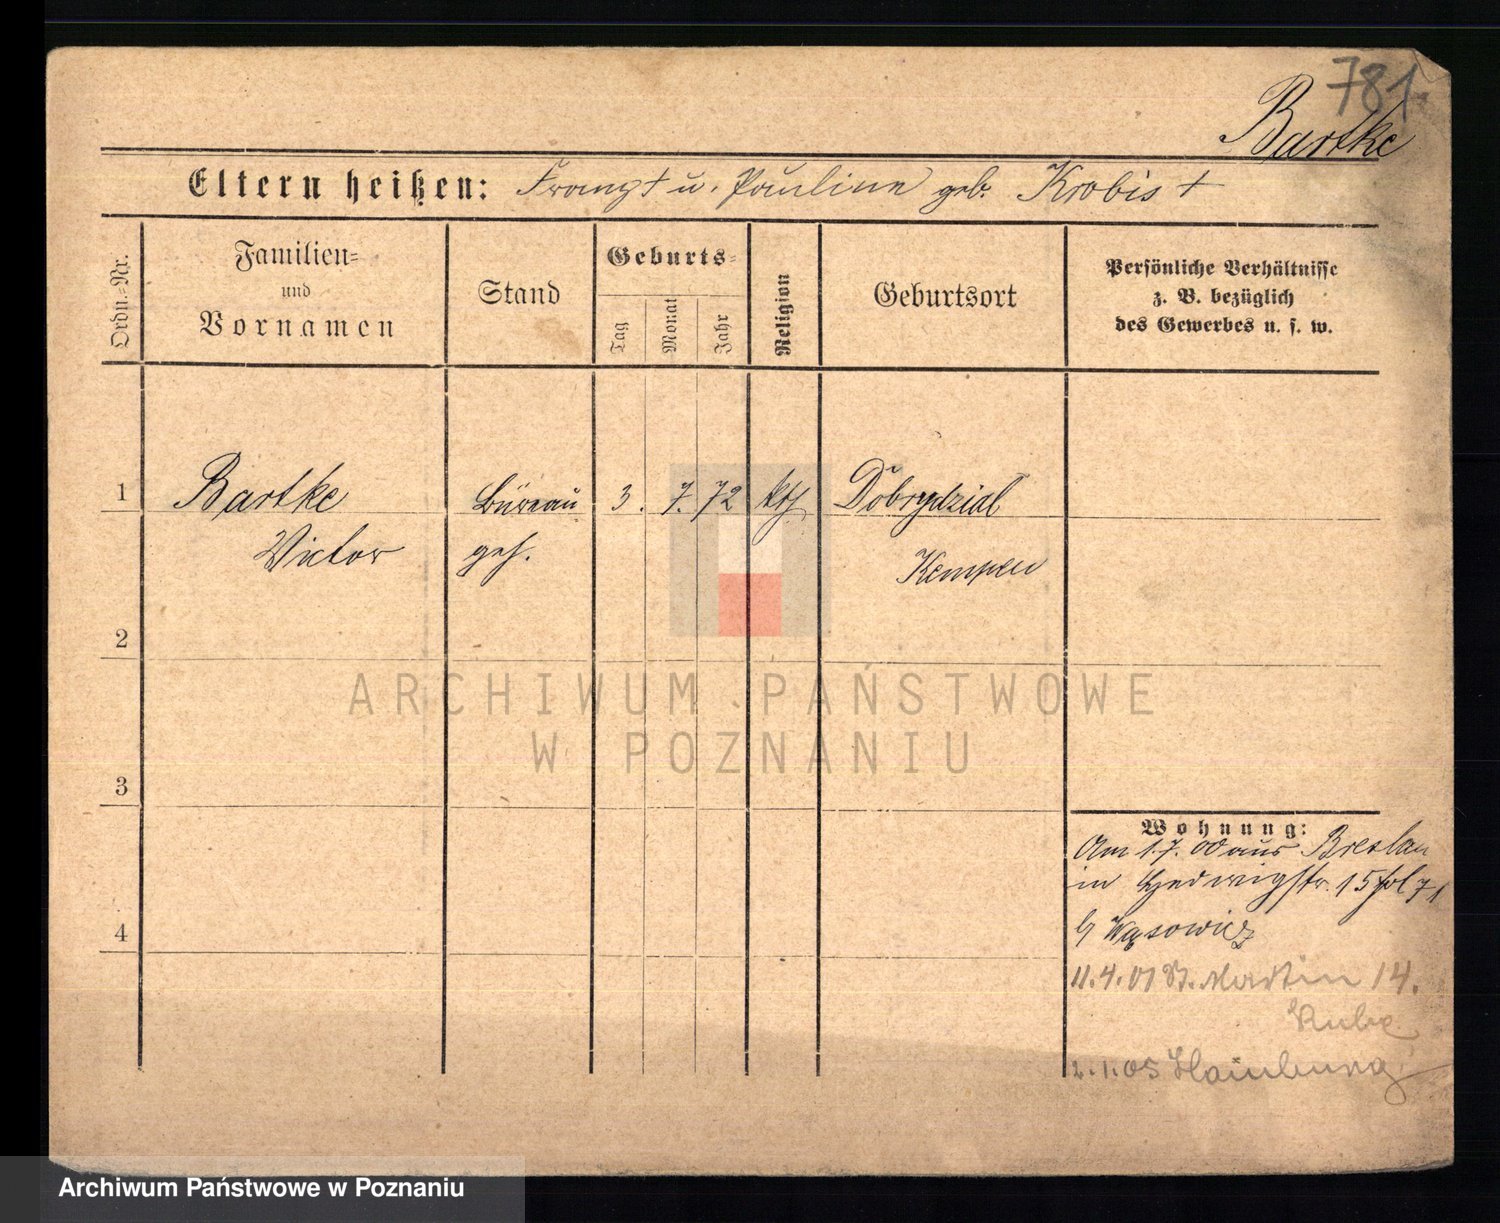 781
Bartke
Eltern heißen: Franz † u. Pauline geb. Krobis †
Ordn.-Nr.
Familien-
und
Vornamen
Stand
Geburts-
Tag
Monat
Jahr
Religion
Geburtsort
Persönliche Verhältnisse
z. B. bezüglich
des Gewerbes u. s. w.
1 Bartke Büreau 3. 7. 72 kth Dobrydzial
Victor geh. Kempen
2
3
4
Wohnung:
Am 1.7.00 aus Breslau
in Hedwigstr. 15 fol 71
b Wąsowicz
11.4.01 St. Martin 14.
Kube
2.1.05 Hainburg
ARCHIWUM PAŃSTWOWE
W POZNANIU
Archiwum Państwowe w Poznaniu